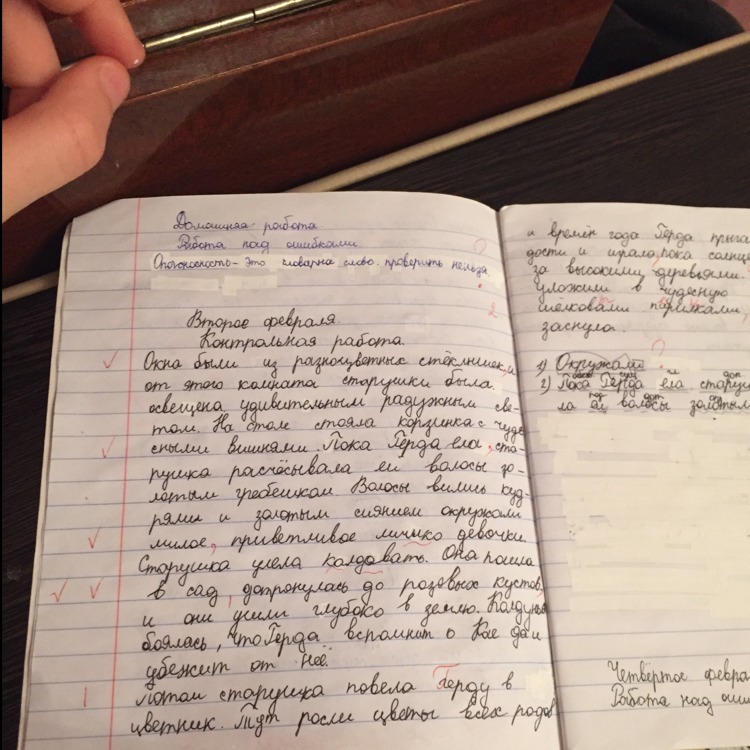 Домашняя работа
Работа над ошибками
это словарна слово проверить нельзя.
Второе февраля.
Контрольная работа.
Окна были из разноцветных стёклышек, и
от этого комната старушки была
освещена удивительным радужным све-
том. На столе стояла корзинка с чуде
сными вишнями. Пока Герда ела, ста-
рушка расчёсывала ей волосы зо-
лотым гребешком. Волосы вились куд-
рями и золотым сиянием окружали
милое, приветливое личико девочки.
Старушка умела колдовать. Она пошла
в сад, дотронулась до розовых кустов,
и они ушли глубоко в землю. Колдунья
боялась, что Герда вспомнит о Кае да и
убежит от неё.
Потом старушка повела Герду в
цветник. Тут росли цветы всех родов
и времён года Герда прыга
дости и играла, пока солнце
за высокими деревьями.
уложили в чудесную
шёлковыми перинками,
заснула.
1) Окружали
2) Пока Герда ела старуш
ла ей волосы золотым
Четвёртое февра
Работа над оши
2